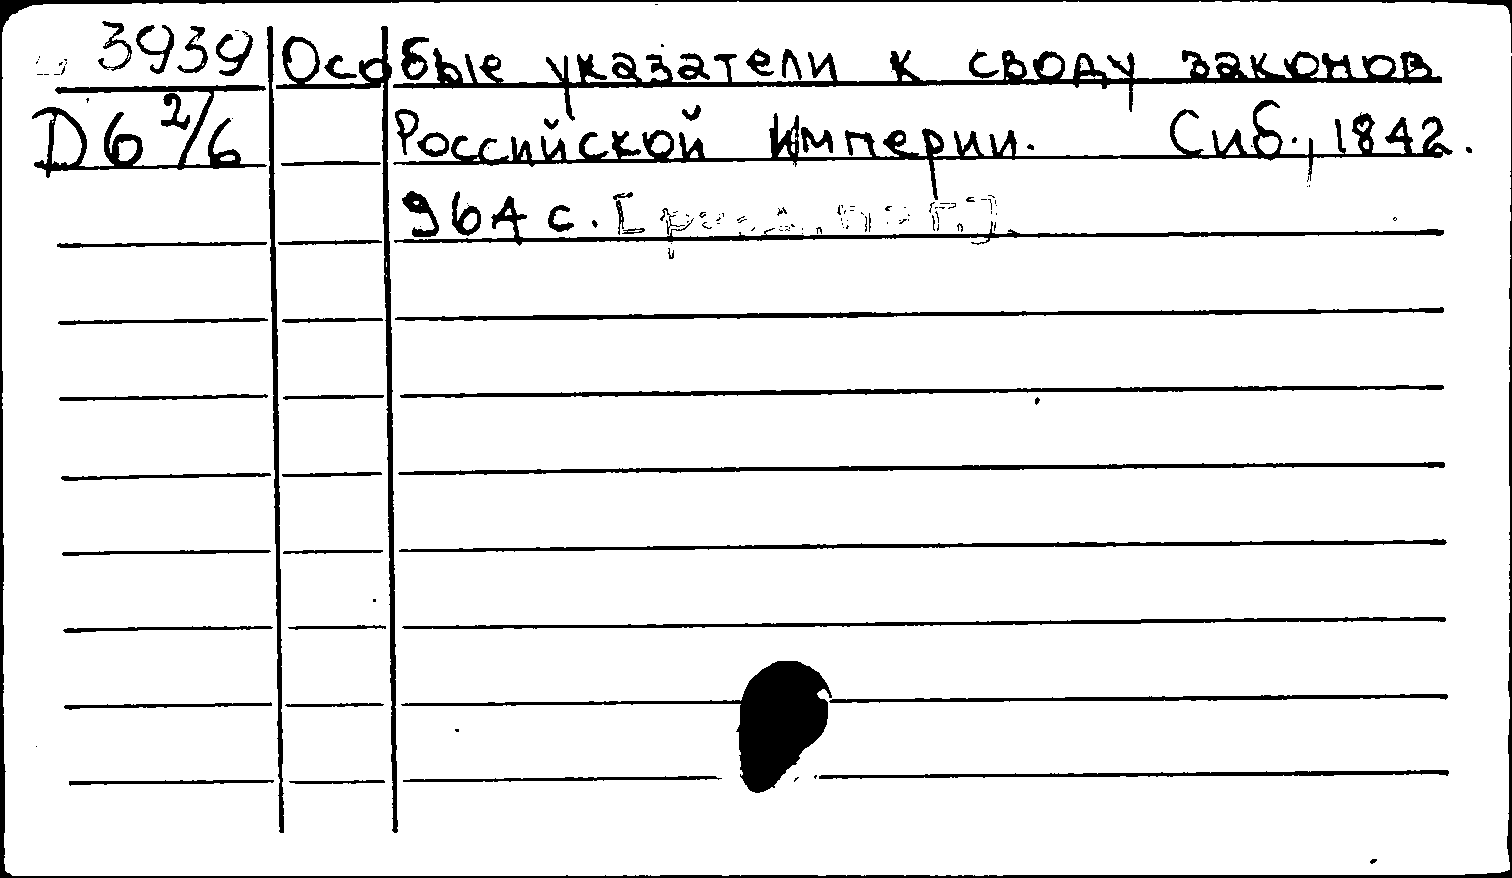 3939 Особые указатели к своду законов
D 6 2/6 Российской Империи. Спб., 1842.
964 с.